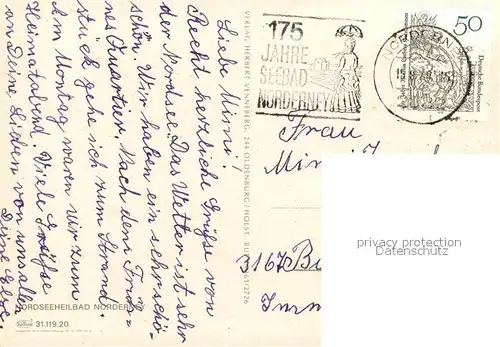 Liebe Minni!
Recht herzliche Grüße von
der Nordsee. Das Wetter ist sehr
schön. Wir haben ein sehr schö-
nes Quartier. Nach dem Früh-
stück gehe ich zum Strand.
Am Montag waren wir zum
Heimatabend. Viele Grüße
an Deine Lieben von uns allen
Deine
NORDSEEHEILBAD NORDERNEY
31.119.20
VERLAG HERBERT VENNEBERG, 244 OLDENBURG/HOLST. RUF
61/2726
175
JAHRE
SEEBAD
NORDERNEY
NORDERN
50
Deutsche Bundespost
Frau
3167
privacy protection
Datenschutz